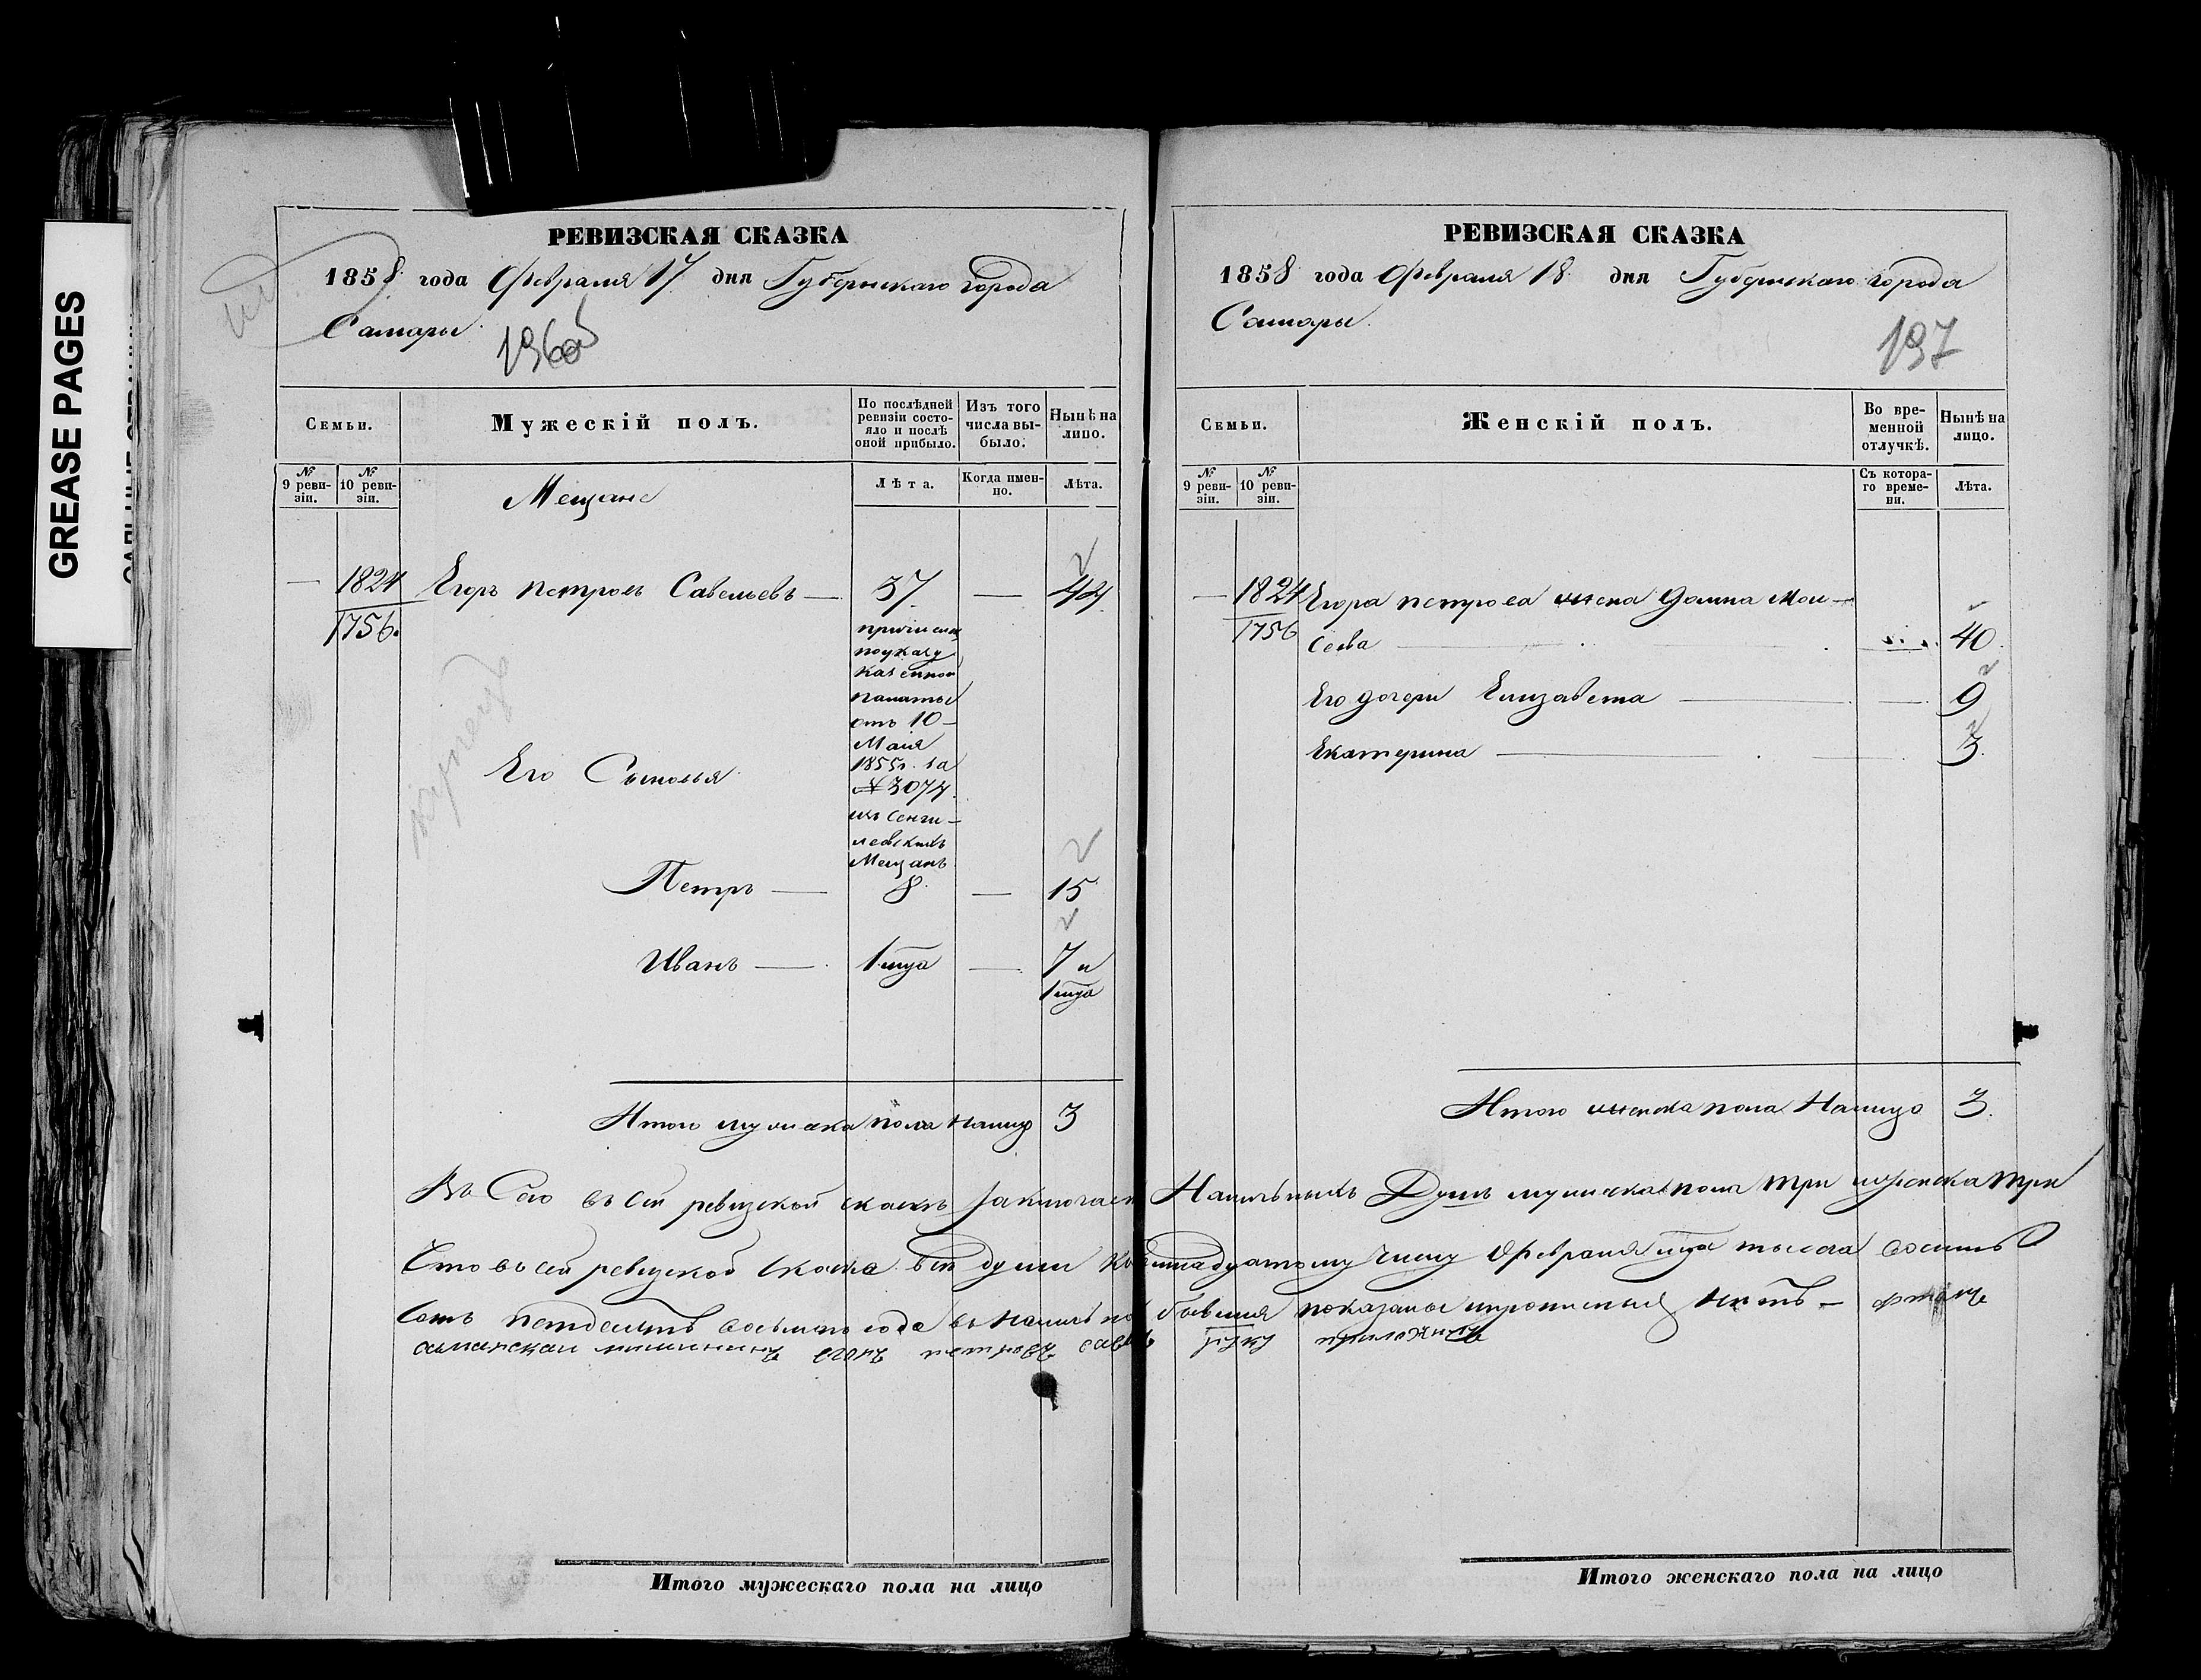 GREASE PAGES
РЕВИЗСКАЯ СКАЗКА
1858 года Февраля 17 дня Губернскаго города
Самары.
196об
Семьи.
Мужескій полъ.
По послѣдней ревизіи состо-
яло и послѣ оной прибыло.
Изъ того числа вы-
было.
Нынѣ на лицо.
№ 9 реви-
зіи.
№ 10 реви-
зіи.
Лѣта.
Когда имен-
но.
Лѣта.
Мещане
— 1824 Егоръ Петровъ Савельевъ — 37. — 44
1756.
причислен
по указу
казенной
палаты
отъ 10 –
Маія
1855 г. за
№ 3074
изъ Сенги –
леевскихъ
Мещанъ
Его Сыновья
Петръ — 8. — 15
Иванъ — 1 мца — 7 и
1 мца
Итого мужска пола налицо 3
Итого мужескаго пола на лицо
РЕВИЗСКАЯ СКАЗКА
1858 года Февраля 18 дня Губернскаго города
Самары.
197
Семьи.
Женскій полъ.
Во вре-
менной
отлучкѣ.
Нынѣ на
лицо.
№ 9 реви-
зіи.
№ 10 реви-
зіи.
Съ котора-
го време-
ни.
Лѣта.
— 1824 Егора Петрова жена Домна Мои –
1756 сеева — 40.
Его дочери Елизавета — 9
Екатерина — 3.
Итого женска пола Налицо 3.
Въ Сего въ сей ревизской сказкѣ заключает Наличныхъ Душъ мужска пола три женска три
Что в сей ревизской Скаска всѣ души к надцатому числу Февраля мца тысеча восимь
Сотъ петдесятъ восьмаго года въ наличь по бывшия показаны и прописныхъ нѣтъ –
егоръ петровъ руку приложилъ
Итого женскаго пола на лицо